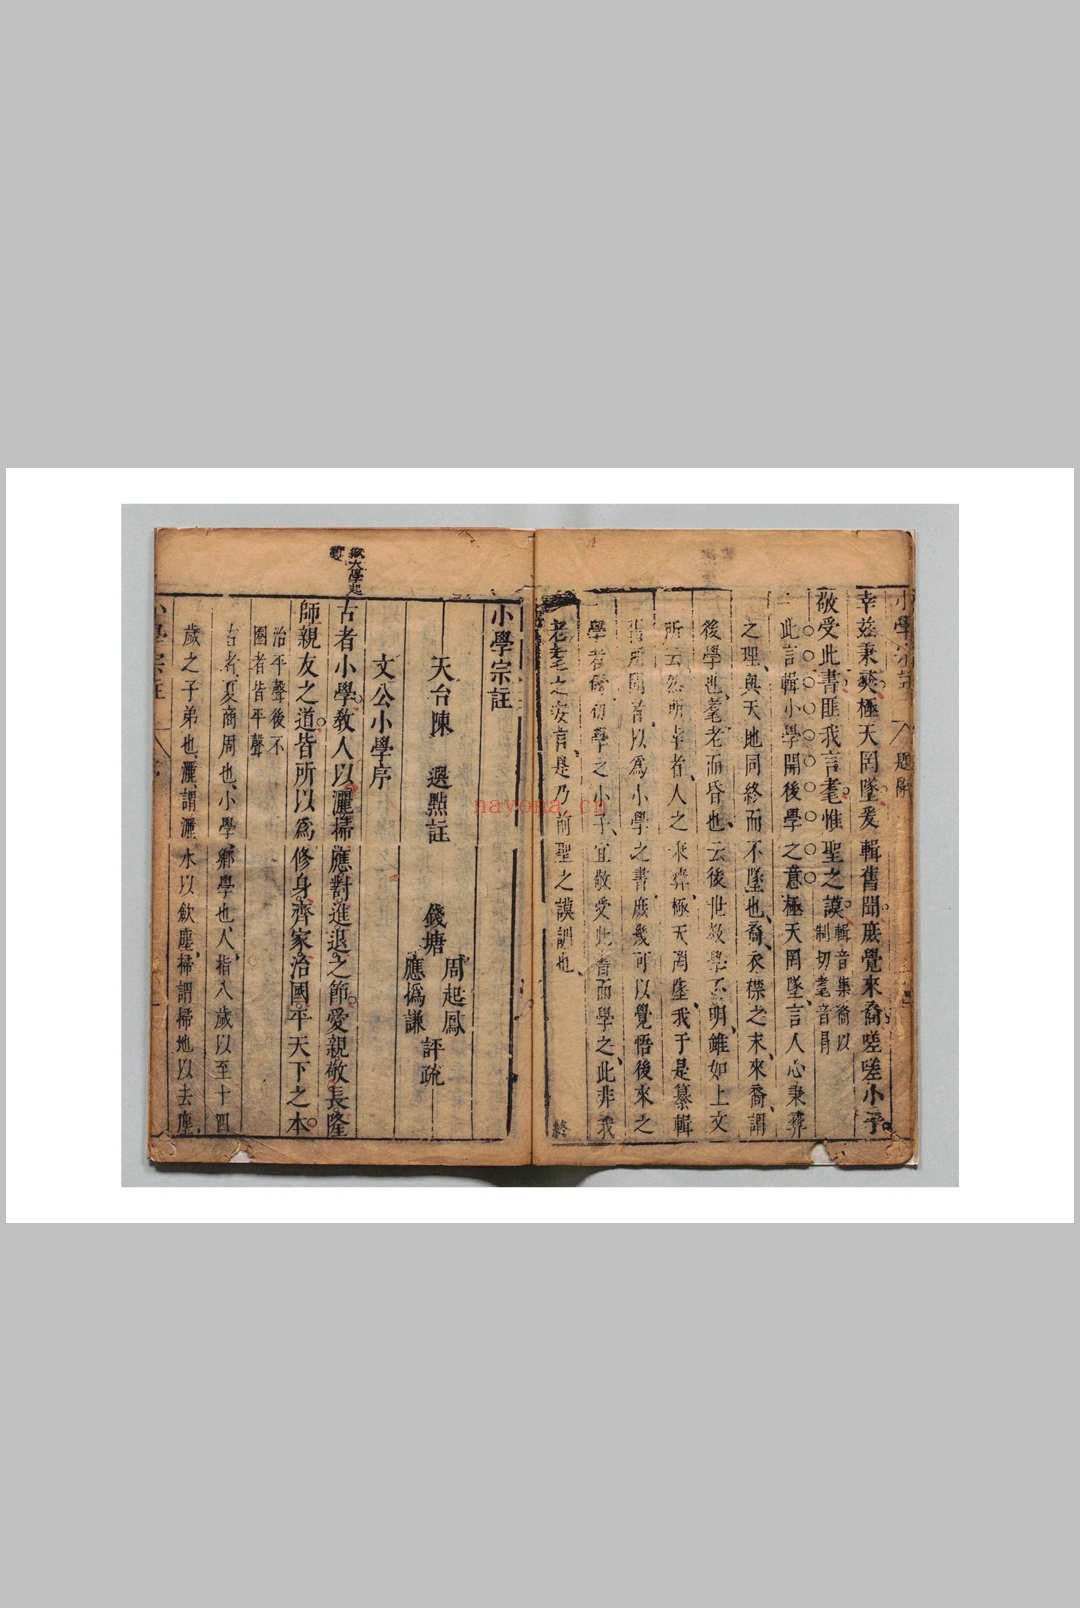 小學宗註
題辭
幸茲秉彝極天罔墜爰輯舊聞庶覺來裔嗟嗟小子
敬受此書匪我言耄惟聖之謨
輯音集裔以
制切耄音冒
此言輯小學開後學之意極天罔墜言人心秉彝
之理與天地同終而不墜也裔衣裾之末來裔謂
後學也耄老而昏也云後世教學不明雖如上文
所云然所幸者人之秉彝極天罔墜我于是纂輯
舊所聞者以為小學之書庶幾可以覺悟後來之
學者爾初學之小子宜敬受此書而學之此非我
老耄之妄言是乃前聖之謨訓也
終
小學宗註
天台陳選點註
錢塘
周起鳳
應撝謙
評疏
文公小學序
古者小學教人以灑掃應對進退之節愛親敬長隆
師親友之道皆所以為修身齊家治國平天下之本
治平聲後不
圈者皆平聲
古者夏商周也小學鄉學也人指八歲以至十四
歲之子弟也灑謂灑水以斂塵掃謂掃地以去塵
小學宗註
nayona.cn